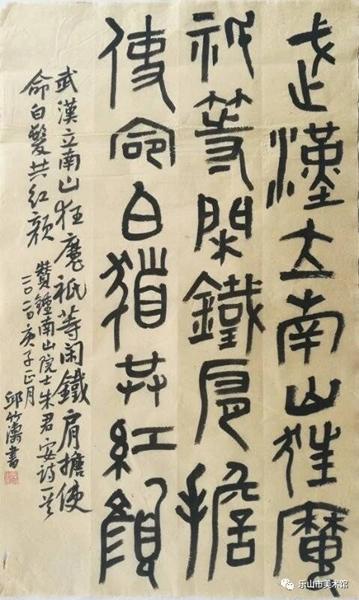 武漢立南山狂魔
祇等閑鐵肩擔
使命白髮共紅顏
武漢立南山狂魔祇等闲鐵肩擔使
命白髮共紅顏 贊鍾南山院士朱君安詩一首
二〇二〇庚子正月
邱竹濤書
乐山市美术馆